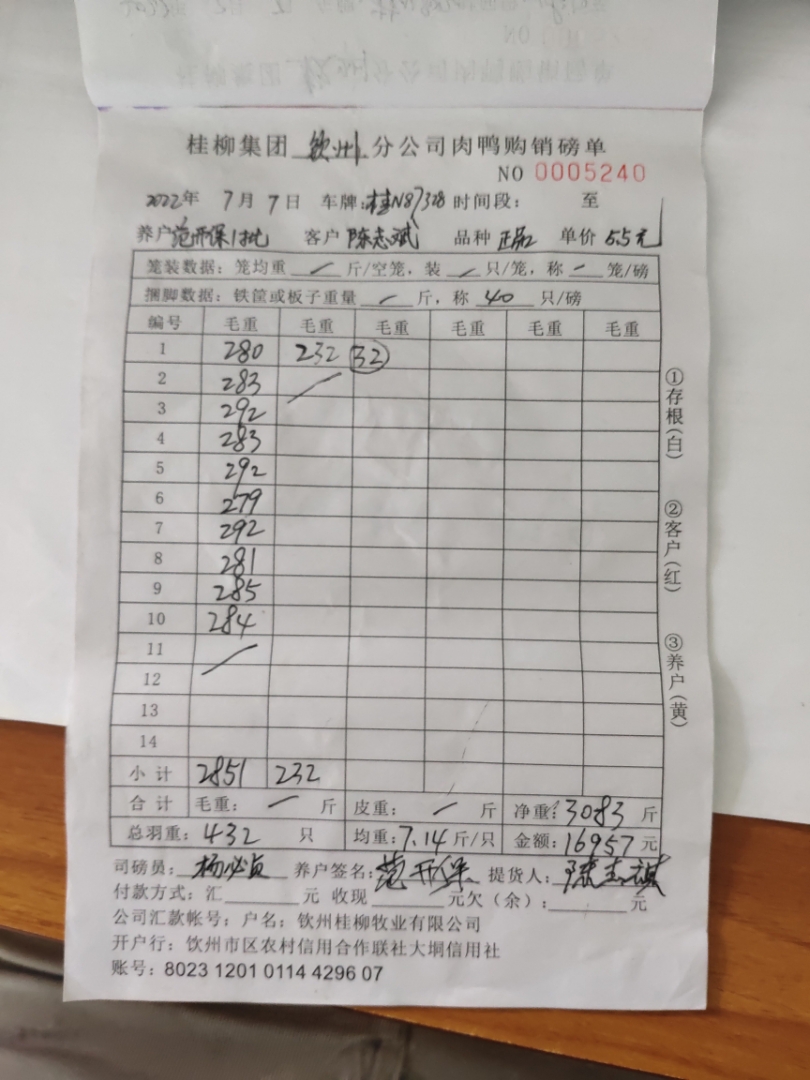 桂柳集团 钦州 分公司肉鸭购销磅单
NO 0005240
2022年 7月7日 车牌:桂N87328 时间段: 至
养户 范开保1批 客户 陈志斌 品种 正品 单价 5.5元
笼装数据:笼均重 / 斤/空笼,装 / 只/笼,称 - 笼/磅
捆脚数据:铁筐或板子重量 / 斤,称 40 只/磅
编号 毛重 毛重 毛重 毛重 毛重 毛重
1 280 232 32
2 283
3 292
4 283
5 292
6 279
7 292
8 281
9 285
10 284
11
12
13
14
小计 2851 232
合计 毛重: - 斤 皮重: - 斤 净重:3083 斤
总羽重:432 只 均重:7.14斤/只 金额:16957元
司磅员: 杨必贞 养户签名: 范开保 提货人:
付款方式:汇 元 收现 元欠(余): 元
公司汇款帐号;户名:钦州桂柳牧业有限公司
开户行:钦州市区农村信用合作联社大垌信用社
账号:8023 1201 0114 4296 07
①存根(白)
②客户(红)
③养户(黄)